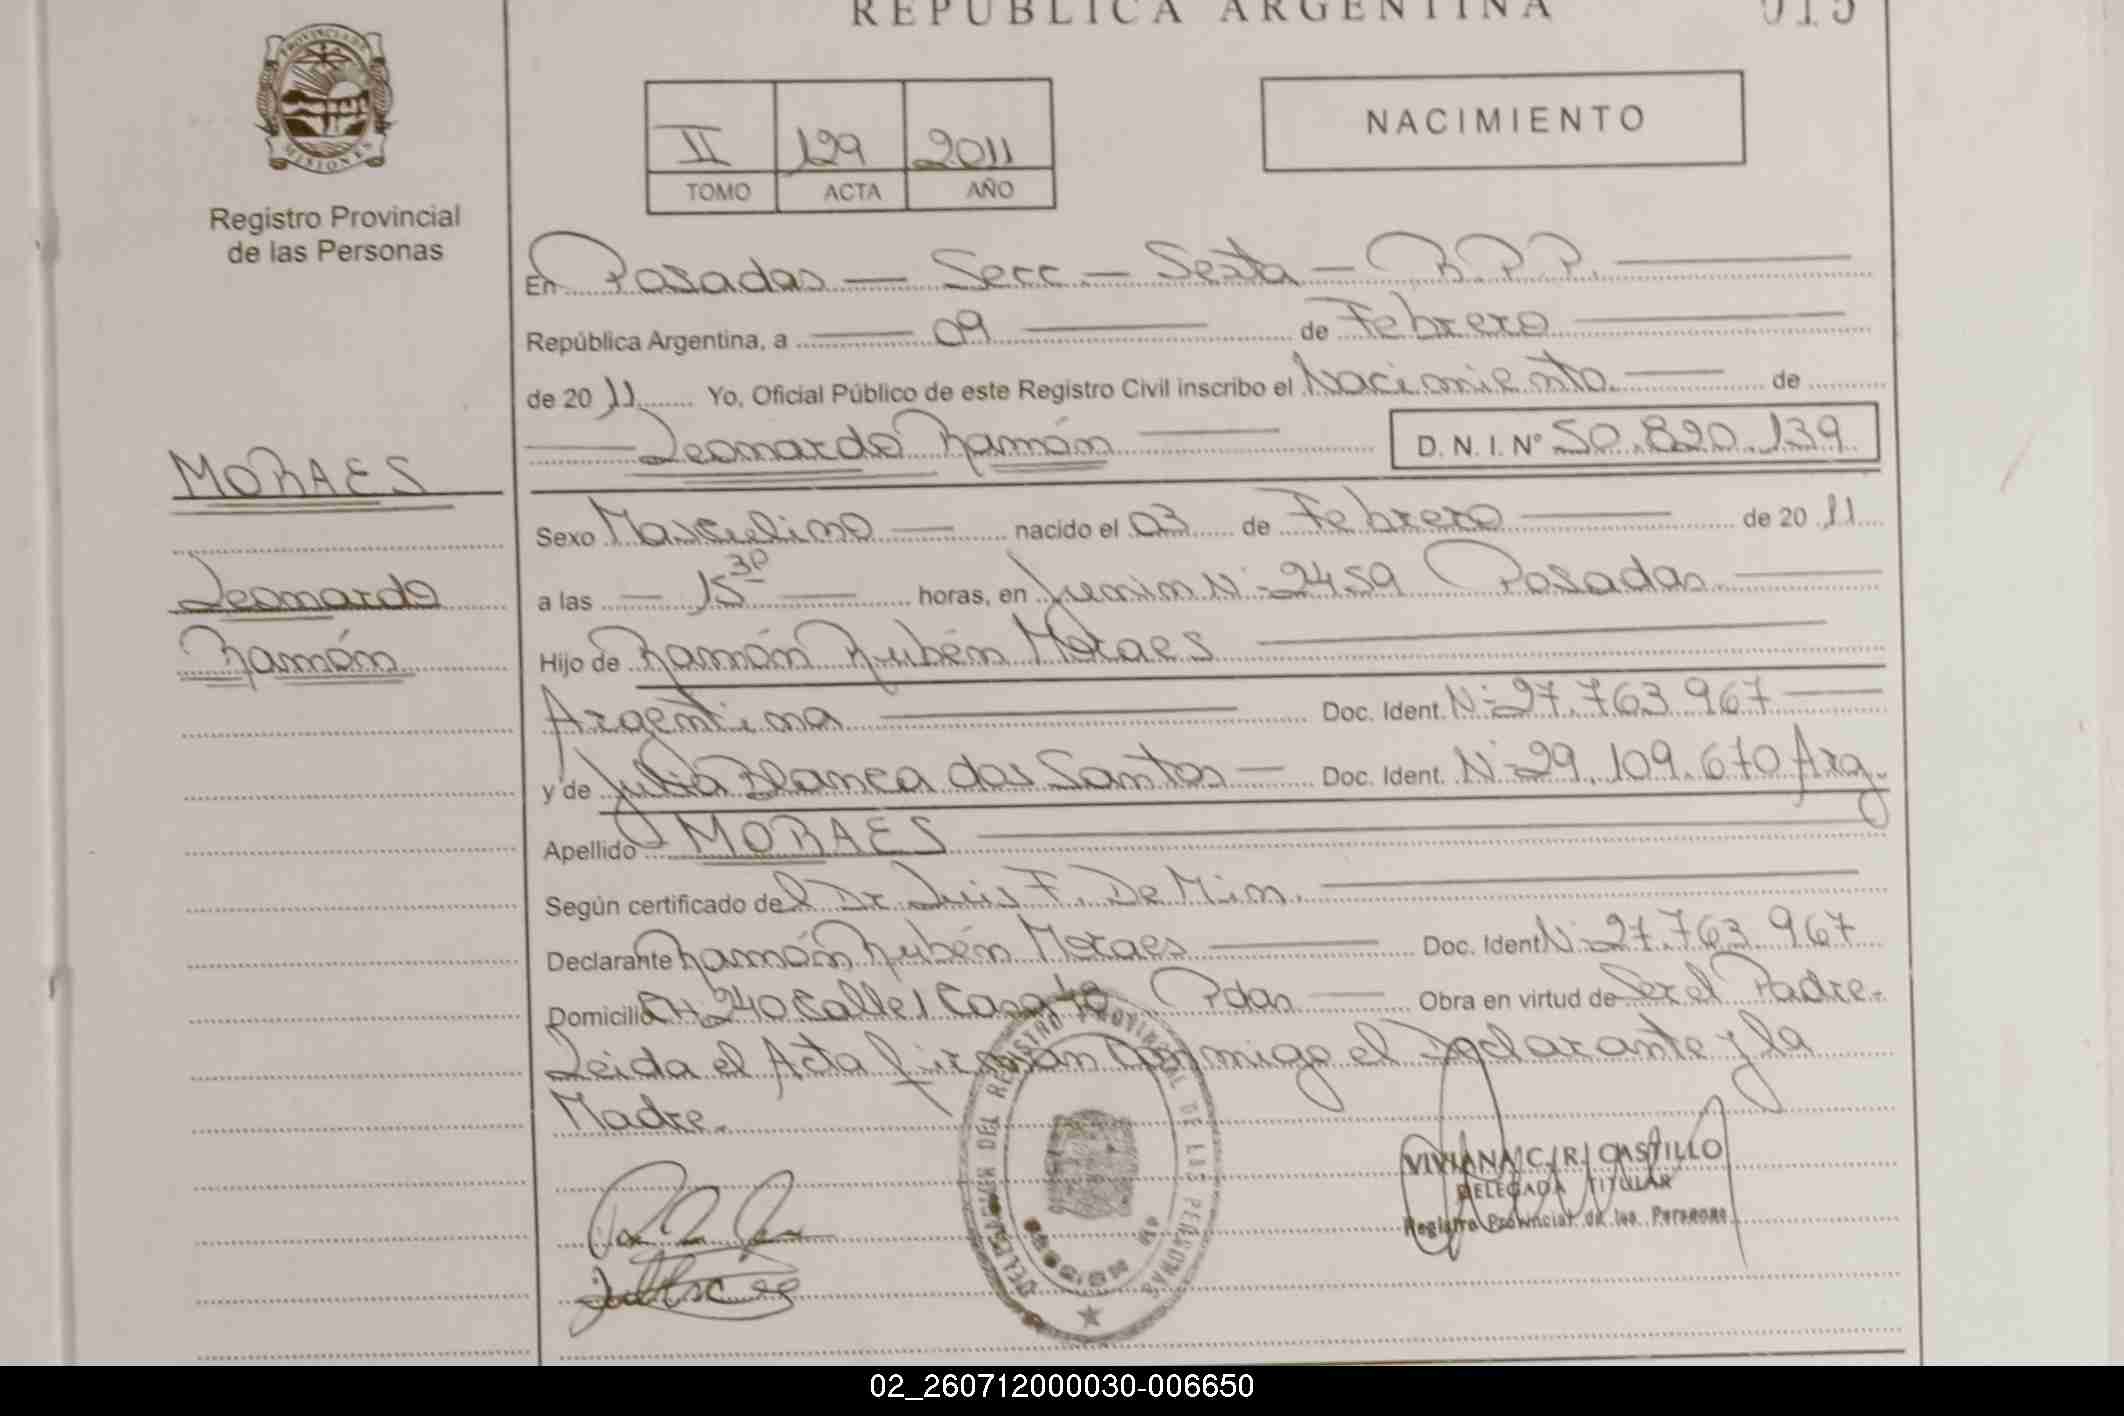 REPUBLICA ARGENTINA
015
PROVINCIA DE
MISIONES
Registro Provincial
de las Personas
II 129 2011
TOMO ACTA AÑO
NACIMIENTO
En Posadas — Secc — Sexta — R.P.P.
República Argentina, a 09 de Febrero
de 20 11 Yo, Oficial Público de este Registro Civil inscribo el Nacimiento de
Leonardo Ramón D. N. I. Nº 50.820.139
MORAES
Leonardo
Ramón
Sexo Masculino nacido el 03 de Febrero de 20 11
a las 15 30 horas, en Junin Nº 2459 Posadas
Hijo de Ramón Rubén Moraes
Argentina Doc. Ident. Nº 27.763.967
y de Julia Blanca dos Santos Doc. Ident. Nº 29.109.670 Arg.
Apellido MORAES
Según certificado del Dr Luis F. De Mim.
Declarante Ramón Rubén Moraes Doc. Ident Nº 27.763.967
Domicilio CH 240 Calle 1 Casa Pdas Obra en virtud de Ser el Padre.
Leida el Acta firman Conmigo el Declarante y la
Madre.
REGISTRO PROVINCIAL DE LAS PERSONAS
VIVIANA C. R. CASTILLO
DELEGADA TITULAR
Registro Provincial de las Personas
02_260712000030-006650